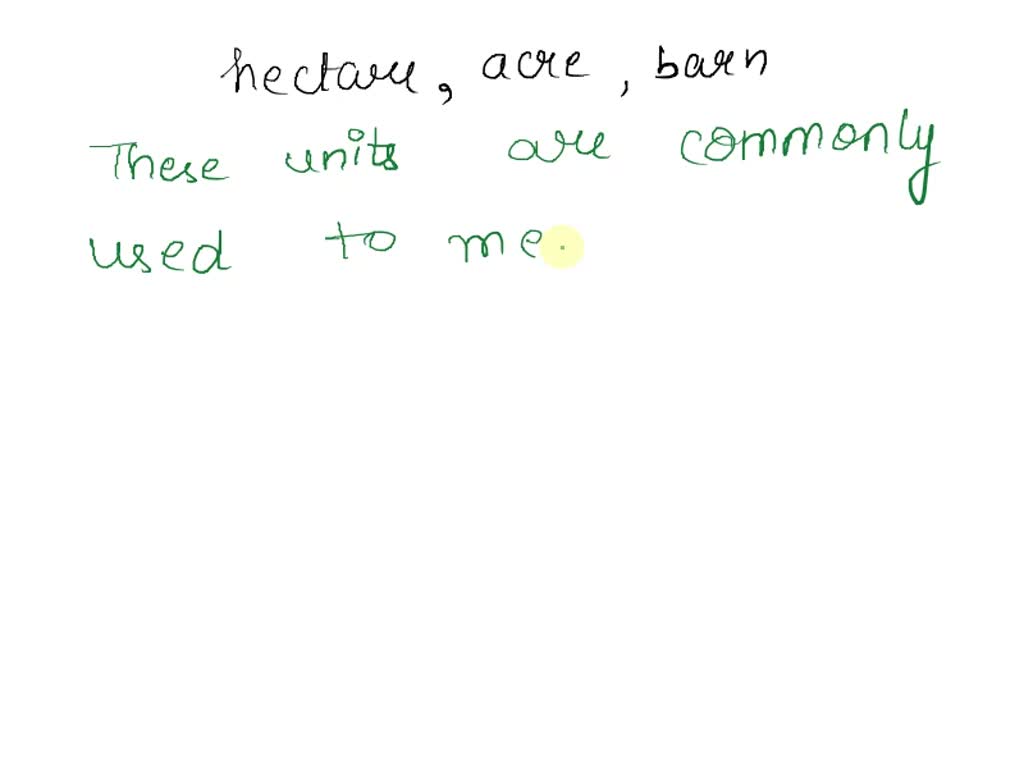 hectare, acre, barn
These units are commonly
used to me